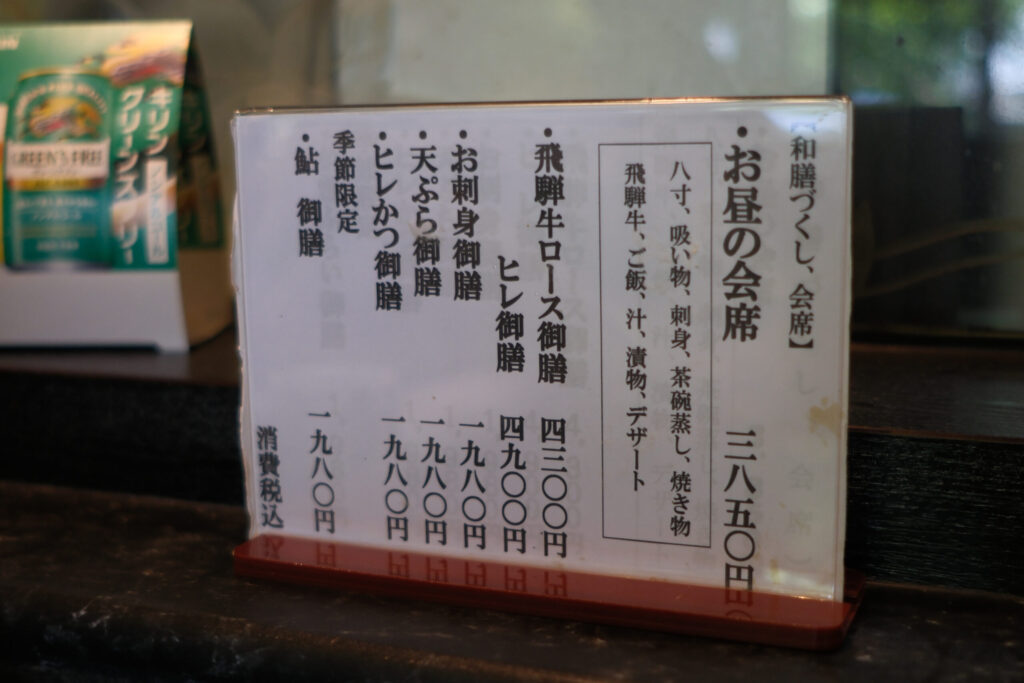 【和膳づくし、会席】
・お昼の会席 三八五〇円
八寸、吸い物、刺身、茶碗蒸し、焼き物
飛騨牛、ご飯、汁、漬物、デザート
・飛騨牛ロース御膳 四三〇〇円
ヒレ御膳 四九〇〇円
・お刺身御膳 一九八〇円
・天ぷら御膳 一九八〇円
・ヒレかつ御膳 一九八〇円
季節限定
・鮎 御膳 一九八〇円
消費税込
キリン
グリーンズフリー
GREEN'S FREE